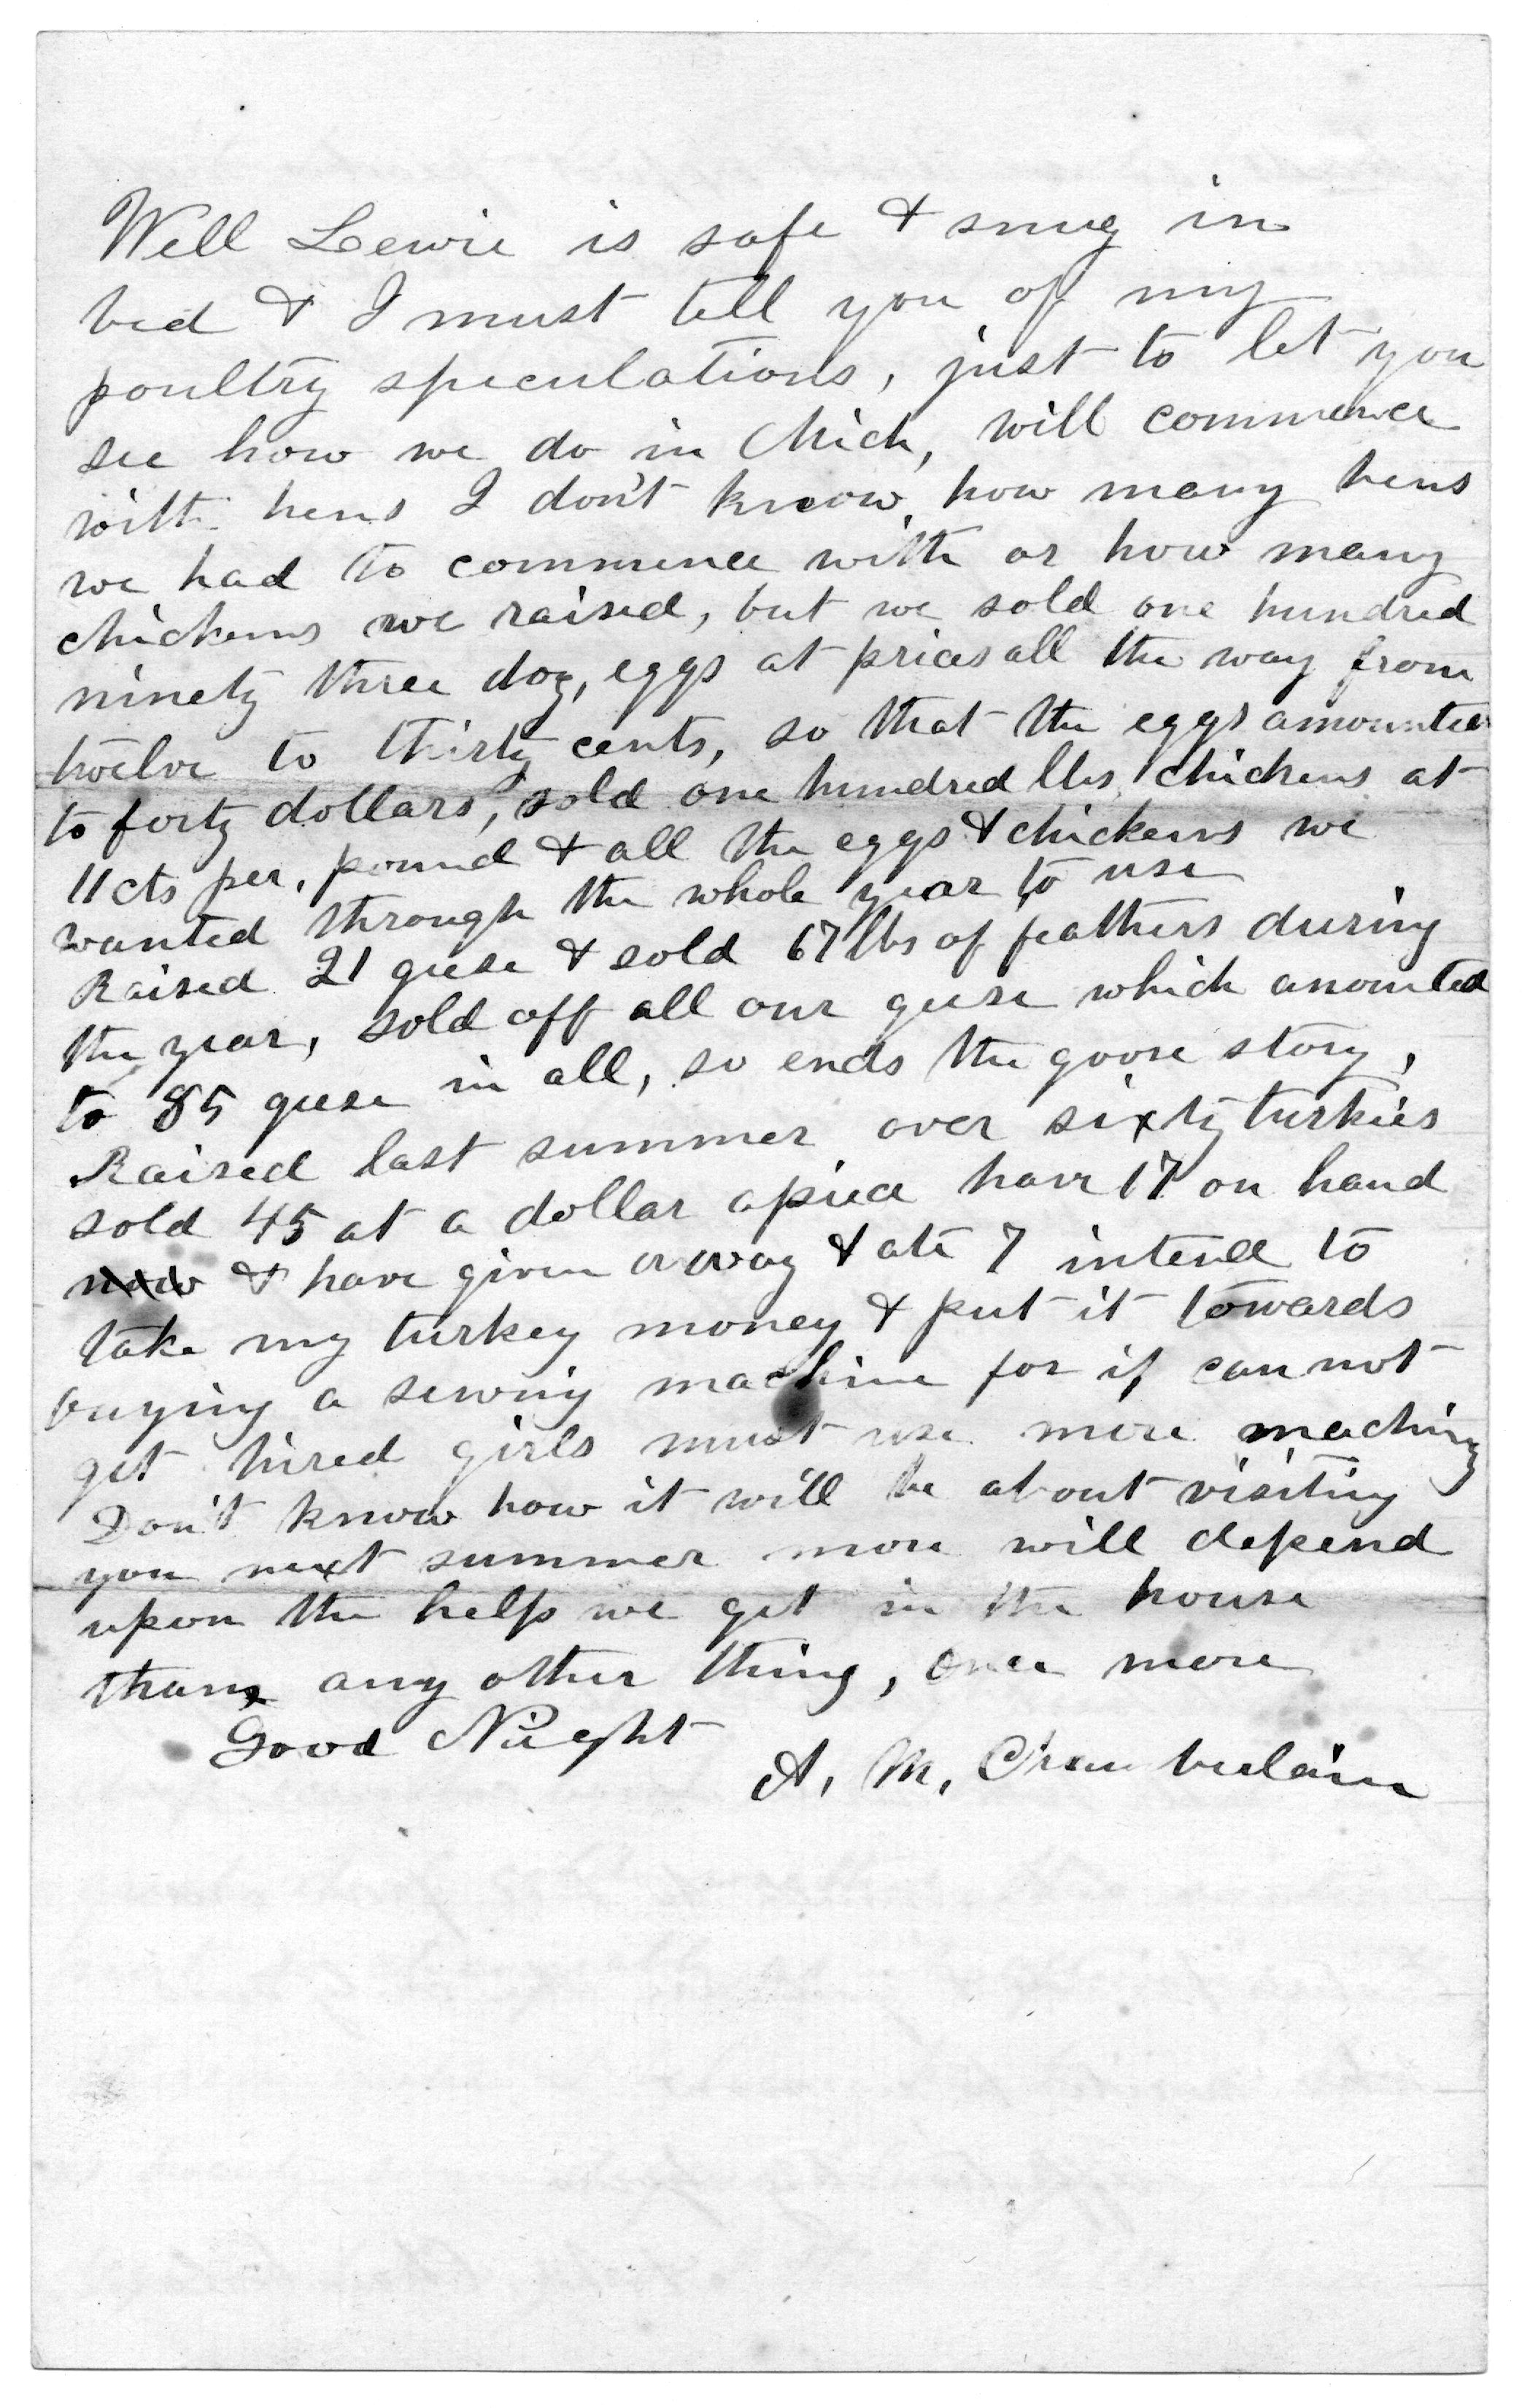 Well Lewie is safe & snug in
bed & I must tell you of my
poultry speculations, just to let you
see how we do in Mich, will commence
with hens I don't know how many hens
we had to commence with or how many
chickens we raised, but we sold one hundred
ninety three doz, eggs at prices all the way from
twelve to thirty cents, so that the eggs amounted
to forty dollars, sold one hundred lbs chickens at
11 cts per, pound & all the eggs & chickens we
wanted through the whole year to use
Raised 21 geese & sold 67 lbs of feathers during
the year, sold off all our geese which amounted
to 85 geese in all, so ends the goose story,
Raised last summer over sixty turkies
sold 45 at a dollar apiece have 17 on hand
now & have given away & ate 7 intend to
take my turkey money & put it towards
buying a sewing machine for if can not
get hired girls must use more machiny
Don't know how it will be about visiting
you next summer more will depend
upon the help we get in the house
than any other thing, once more
Good Night
A, M, Chamberlain